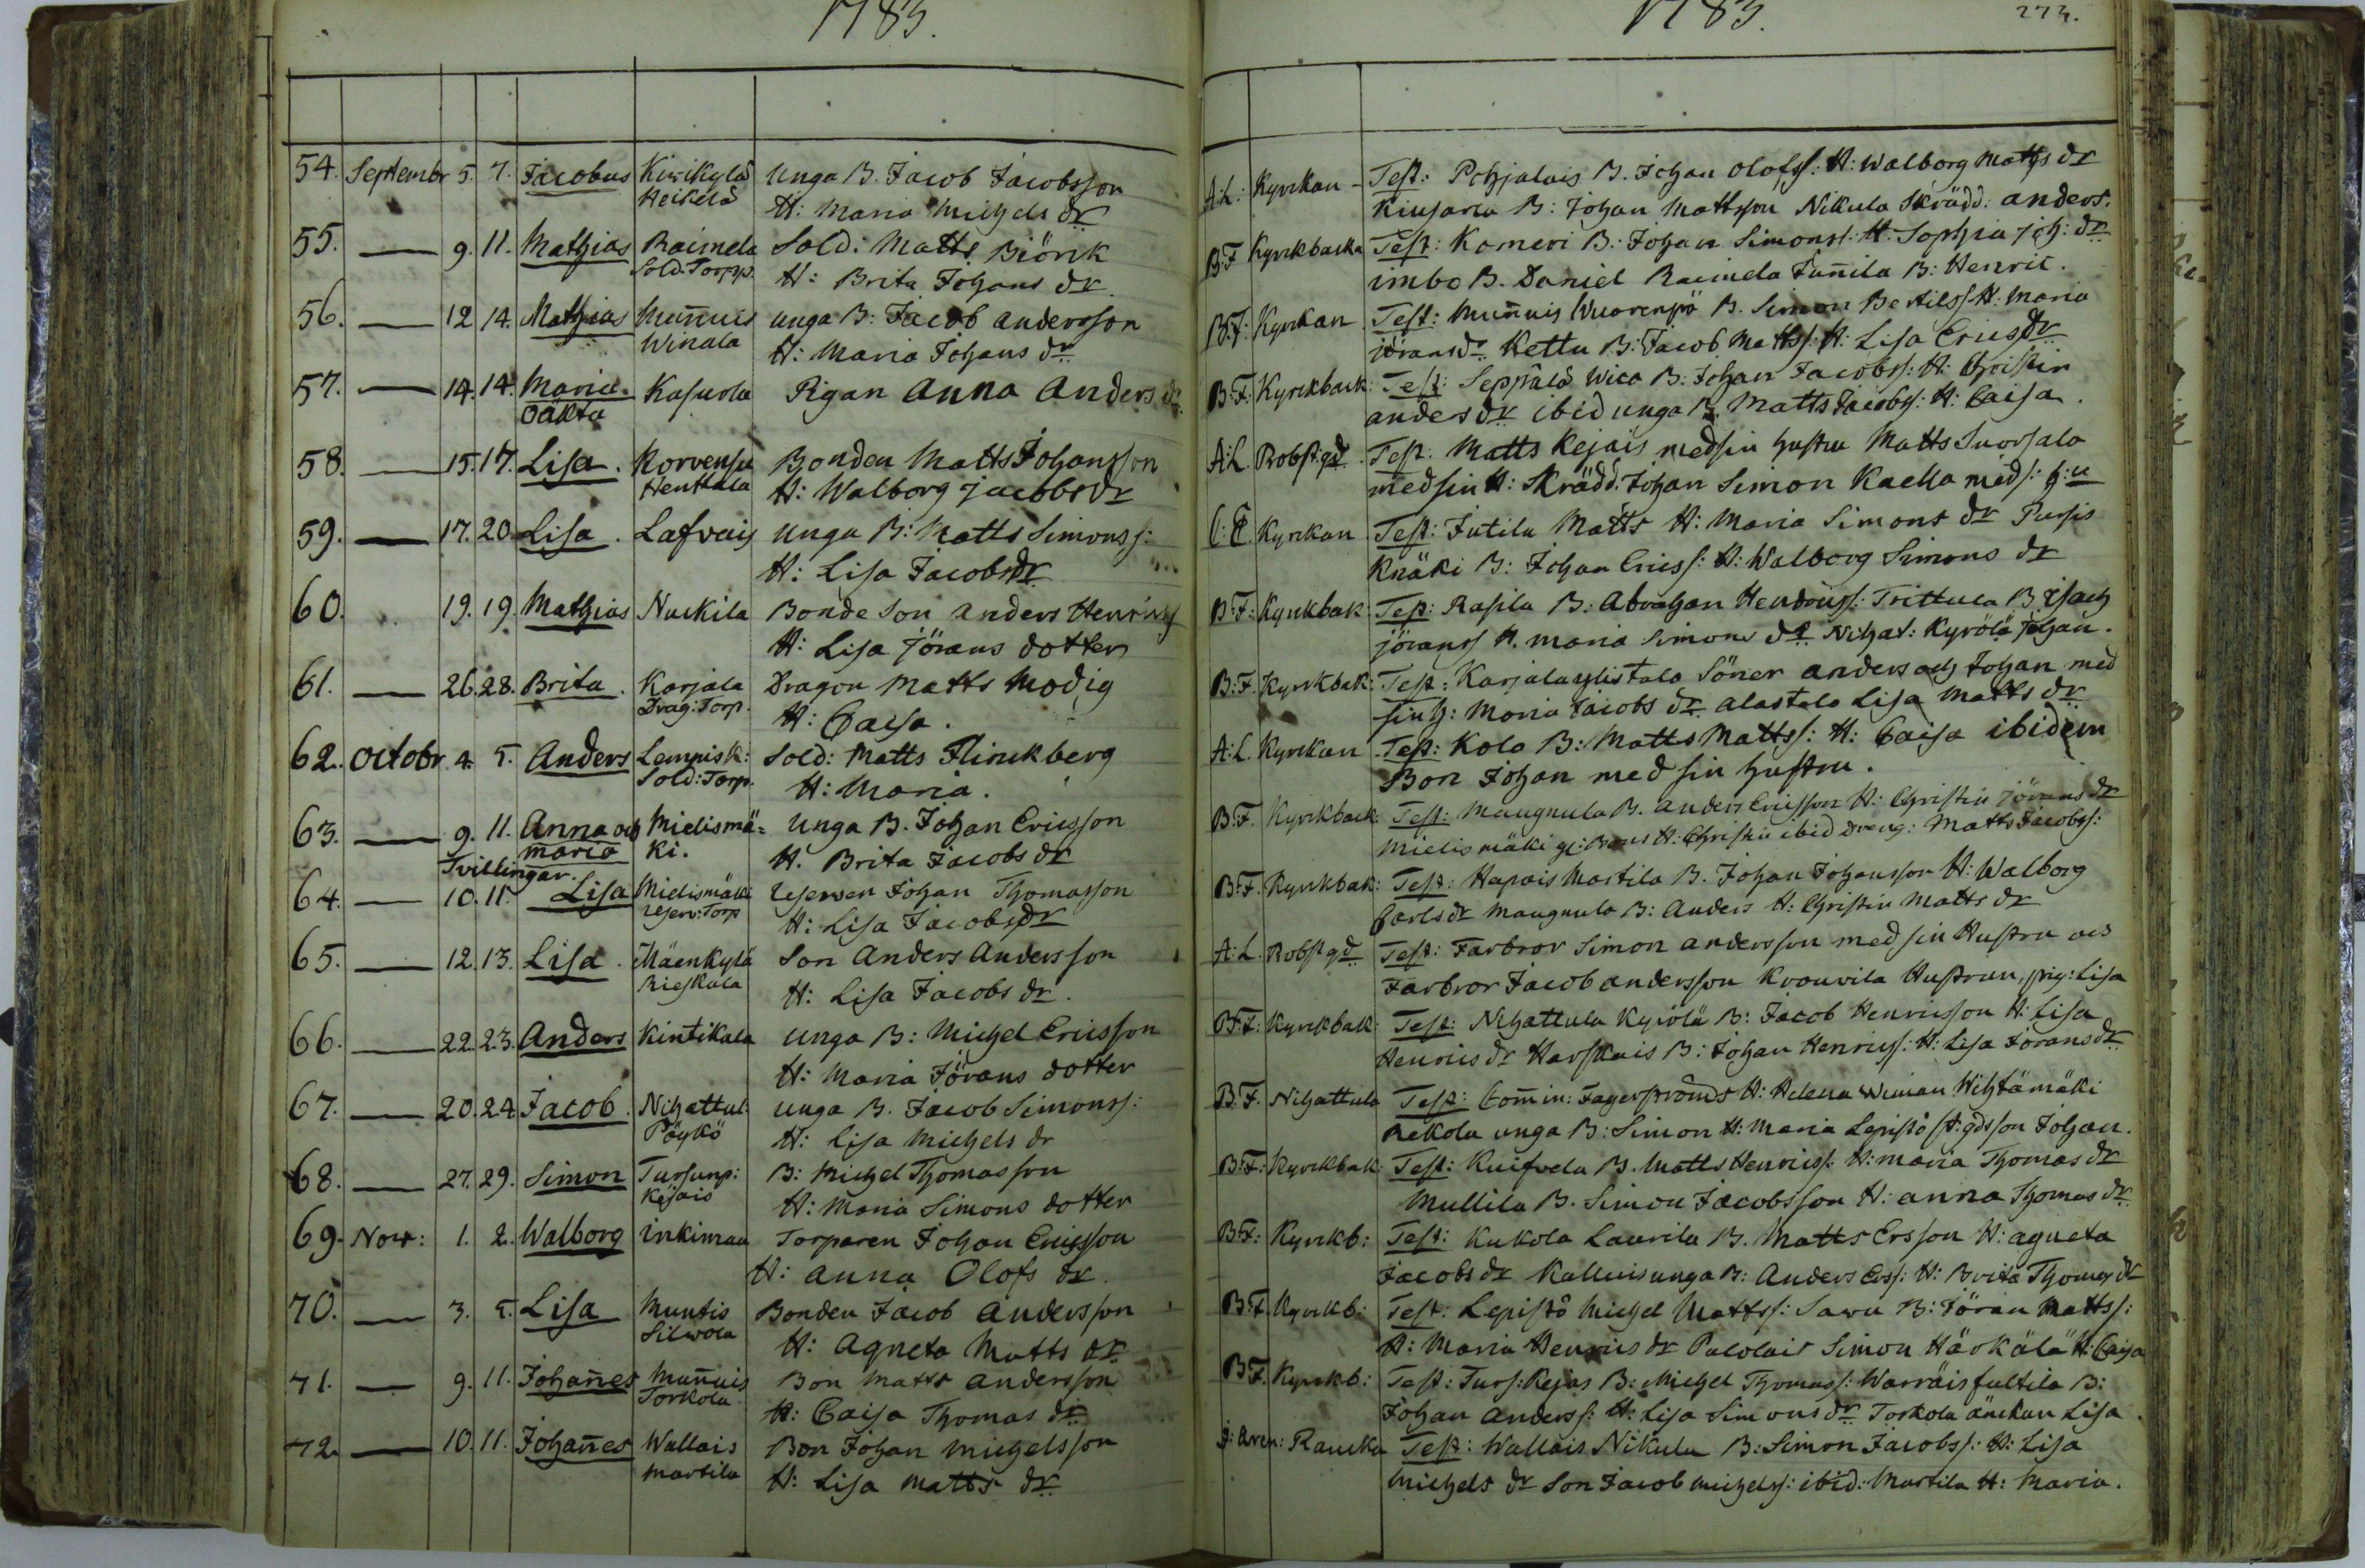 1783.
54. Septembr 5. 7. Jacobus Kirikylä Unga B. Jacob Jacobsson
Heikelä H: Maria Michels dr
55. — 9. 11. Mathias Raimela Sold: Matts Biörk
Sold. Torpp. H: Brita Johans dr.
56. — 12 14. Mathias Muñuis unga B: Jacob andersson
Winala H: Maria Johans dr
57. — 14. 14. Maria Kasurla Pigan Anna Anders dr.
oäkta
58. — 15. 17. Lisa. Korvensu Bonden Matts Johansson
Henttala H: Walborg Jacobs dr
59. — 17. 20. Lisa. Lafvais unga B: Matts Simonss:
H: Lisa Jacobs dr
60. 19. 19. Mathias Nuckila Bonde Son anders Henrics
H: Lisa Jörans dotter
61. — 26. 28. Brita. Karjala Dragon Matts Modig
Drag: Torp. H: Caisa.
62. octobr 4. 5. Anders Lempisk: Sold: Matts Flinckberg
Sold: Torp. H: Maria.
63. — 9. 11. Anna och Mielismä= Unga B. Johan Ericsson
maria ki. H. Brita Jacobs dr
Tvillingar.
64. — 10. 11. Lisa Mielismäki reserven Johan Thomasson
reserv: Torp H: Lisa Jacobs dr
65. — 12. 13. Lisa. Mäenkylä Son Anders Andersson
Rieskala H: Lisa Jacobs dr.
66. — 22. 23. Anders Kintikala Unga B: Michel Ericsson
H: Maria Jörans dotter
67. — 20. 24. Jacob. Nihattul: unga B. Jacob Simonss:
Pöykö H: Lisa Michels dr
68. — 27. 29. Simon Tursunp: B: Michel Thomasson
Kejais H: Maria Simons dotter
69. Nov: 1. 2. Walborg inkiman Torparen Johan Ericsson
H: anna Olofs dr.
70. — 3. 5. Lisa Muntis Bonden Jacob andersson
Silwola H: Agneta Matts dr
71. — 9. 11. Johañes Muñuis Bon Matts andersson
Torkola H: Caisa Thomas dr
72. — 10. 11. Johañes Wallais Bon Johan Michelsson
Martila H: Lisa Matts dr
1783. 273.
A:L: Kyrckan - Test: Pohjalais B. Johan Olofss: H: Walborg Matts dr
Kiusarla B: Johan Mattsson Nikula Skrädd: anders.
B:F Kyrckbacka Test: Komeri B: Johan Simonss: H: Sophia joh: dr
imbo B. Daniel Raimela Juñila B: Henric.
B:F: Kyrckan Test: Muñuis Wuorenpä B. Simon Bertilss: H: Maria
jörans dr Kettu B: Jacob Matts: H: Lisa Erics dr
B:F: Kyrckback: Test: Seppälä Wica B: Johan Jacobss: H: Christin
anders dr ibid unga B. Matts Jacobs: H: Caisa.
A:L. Robstgd. Test. Matts Kejais med sin hustru Matts Suorsala
med sin H: Skrädd. Johan Simon Kaella med s: h:u
Kyrckan Test: Jutila Matts H: Maria Simons dr Pursis
Knäki B: Johan Erics: H: Walborg Simons dr
B:F: Kyrckbak: Test: Rasila B. Abraham Hendrics: Trittula B. isach
jörans H. maria Simons dr Nihat: Kyrölä Johan.
B:F. Kyrckbak: Test: Karjala ylistalo Söner anders och Johan med
sin h: Maria Jacobs dr alastalo Lisa Matts dr
A:L. Kyrckan Test: Kola B: Matts Matts: H: Caisa ibidem
Bon Johan med sin hustru.
B:F. Kyrckback: Test: Maugnula B. anders Ericsson H: Christin Jörans dr
Mielismäki gl: Bons H: Christin ibid dreng: Matts Jacobs:
B:F. Kyrckbak: Test: Hapais Martila B. Johan Johansson H: Walborg
Carls dr Maugnula B: anders H: Christin Matts dr
A:L. Robstgd Test: Farbror Simon andersson med sin Hustru och
Farbror Jacob andersson Krouvila Hustrun, pig: Lisa
B:F: Kyrckbak: Test: Nihattula Kyrölä B: Jacob Henricsson H: Lisa
Henrics dr Harskais B: Johan Henrics: H: Lisa Jörans dr
B:F. Nihattula Test: Com̃in: Fagerströms H: Helena Wiman Wihtämäki
Rekola unga B: Simon H: Maria Lepistö st: gdsson Johan.
B:F: Kyrckbak: Test: Kuifvela B. Matts Henrics: H: maria Thomas dr
Mullila B. Simon Jacobsson H: anna Thomas dr
B:F: Kyrckb: Test: Kukola Laurila B. Matts Ersson H: agneta
Jacobs dr Kalluis unga B: Anders Erss: H: Brita Thomas dr
B:F. Kyrckb: Test: Lepistö Michel Matts: Sawu B: Jöran Matts:
H: Maria Henrics dr Palolais Simon Härkälä H: Caisa
B:F. Kyrckb: Test: Turs: Kejas B: Michel Thomas: Warräis fultila B:
Johan anderss: H: Lisa Simons dr Torkola änckan Lisa
Raucka Test: Wallais Nikula B: Simon Jacobs: H: Lisa
Michels dr Son Jacob Michels: ibid: Martila H: Maria.